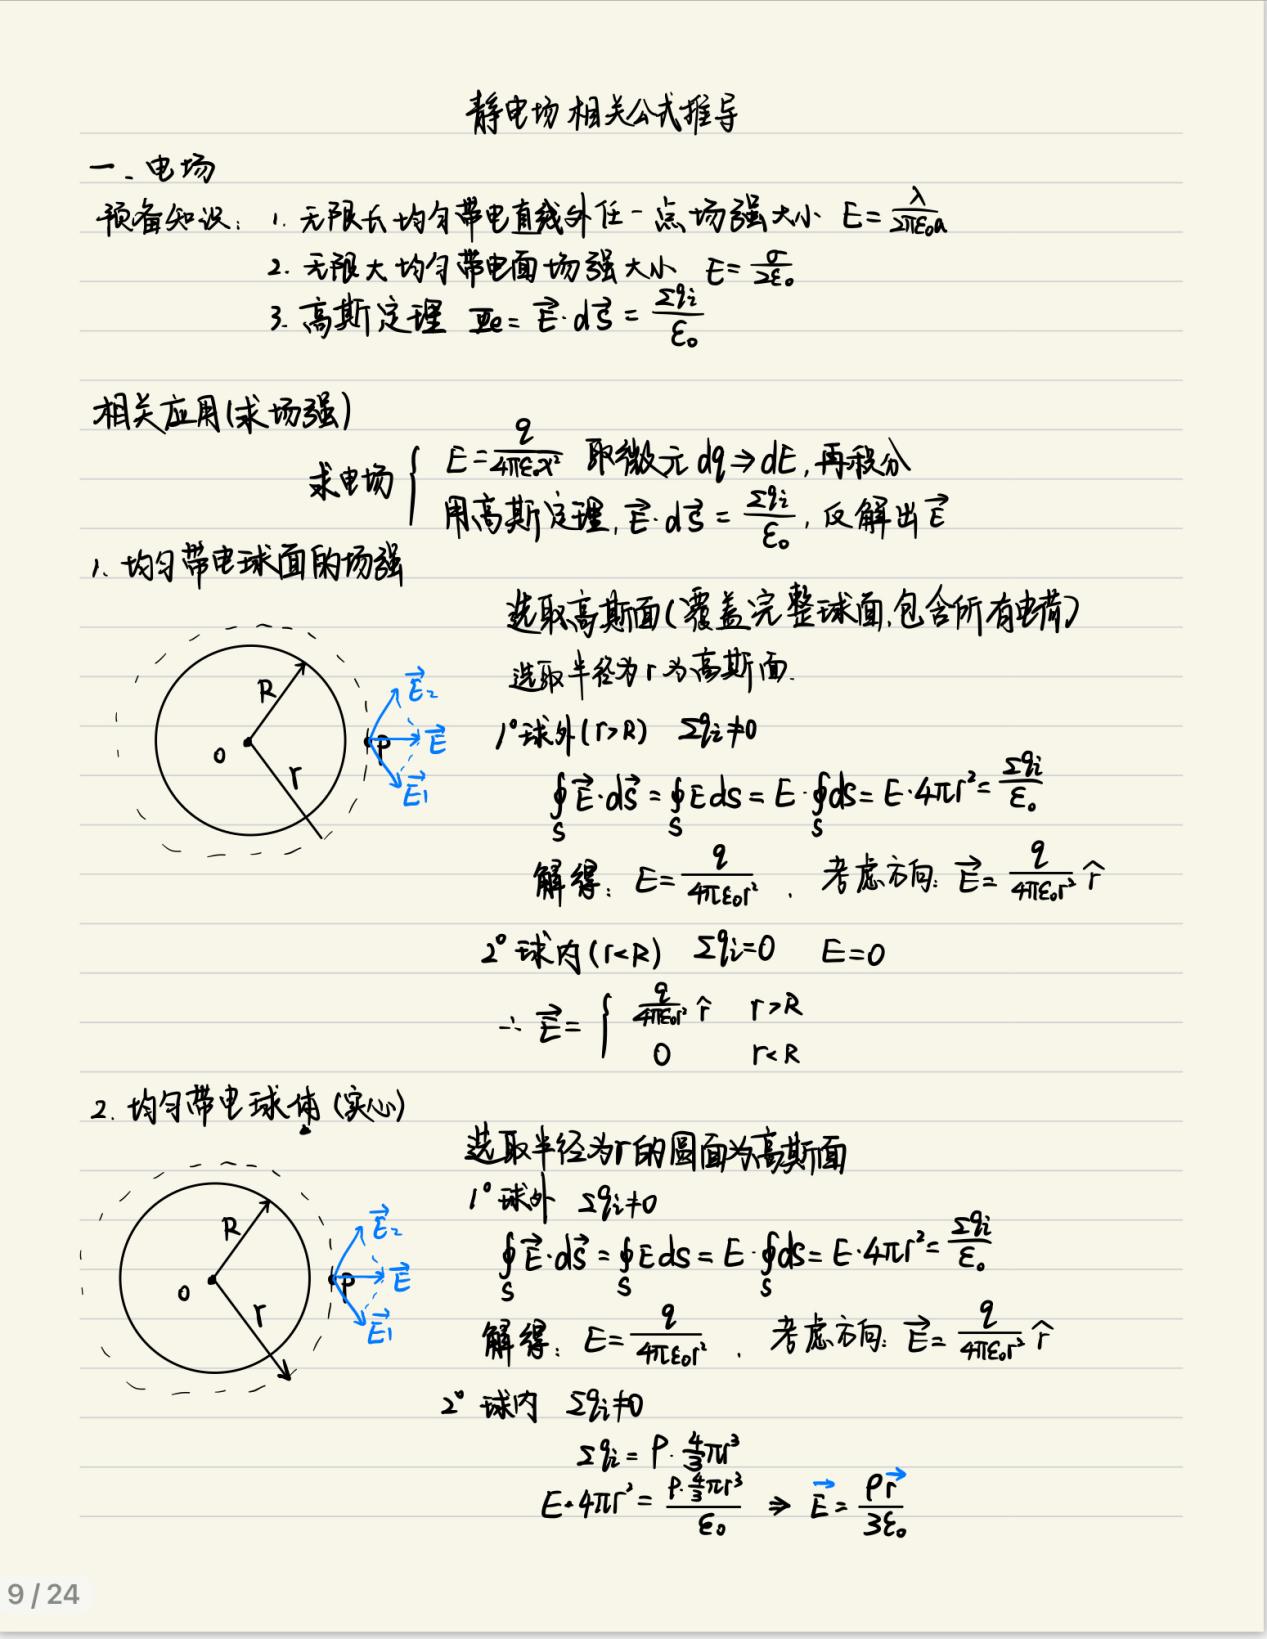 静电场相关公式推导
一、电场
预备知识：1. 无限长均匀带电直线外任一点场强大小 E=λ/2πε₀a
2. 无限大均匀带电面场强大小 E=σ/2ε₀
3. 高斯定理 Φe=E⃗·dS⃗=Σqi/ε₀
相关应用(求场强)
求电场{ E=q/4πε₀x² 取微元dq⇒dE,再积分
用高斯定理,E⃗·dS⃗=Σqi/ε₀,反解出E⃗
1. 均匀带电球面的场强
选取高斯面(覆盖完整球面,包含所有电荷)
选取半径为r为高斯面.
R
O
r
P
E⃗₂
E⃗
E⃗₁
1°球外(r>R) Σqi≠0
∮S E⃗·dS⃗=∮S EdS=E·∮S dS=E·4πr²=Σqi/ε₀
解得: E=q/4πε₀r². 考虑方向: E⃗=q/4πε₀r² r̂
2°球内(r<R) Σqi=0 E=0
∴ E⃗={ q/4πε₀r² r̂ r>R
0 r<R
2. 均匀带电球体(实心)
选取半径为r的圆面为高斯面
R
O
r
P
E⃗₂
E⃗
E⃗₁
1°球外 Σqi≠0
∮S E⃗·dS⃗=∮S EdS=E·∮S dS=E·4πr²=Σqi/ε₀
解得: E=q/4πε₀r². 考虑方向: E⃗=q/4πε₀r² r̂
2°球内 Σqi≠0
Σqi=ρ·4/3πr³
E·4πr²=ρ·4/3πr³/ε₀ ⇒ E⃗=ρr⃗/3ε₀
9 / 24